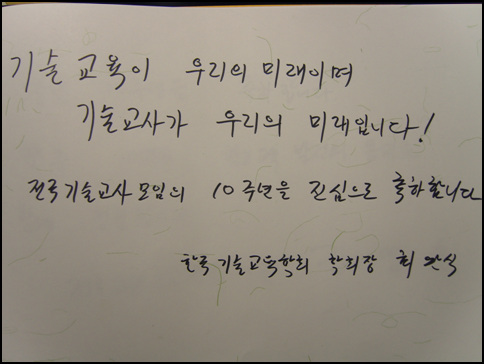 기술교육이 우리의 미래이며
기술교사가 우리의 미래입니다!
전국기술교사모임의 10주년을 진심으로 축하합니다
한국기술교육학회 학회장 최